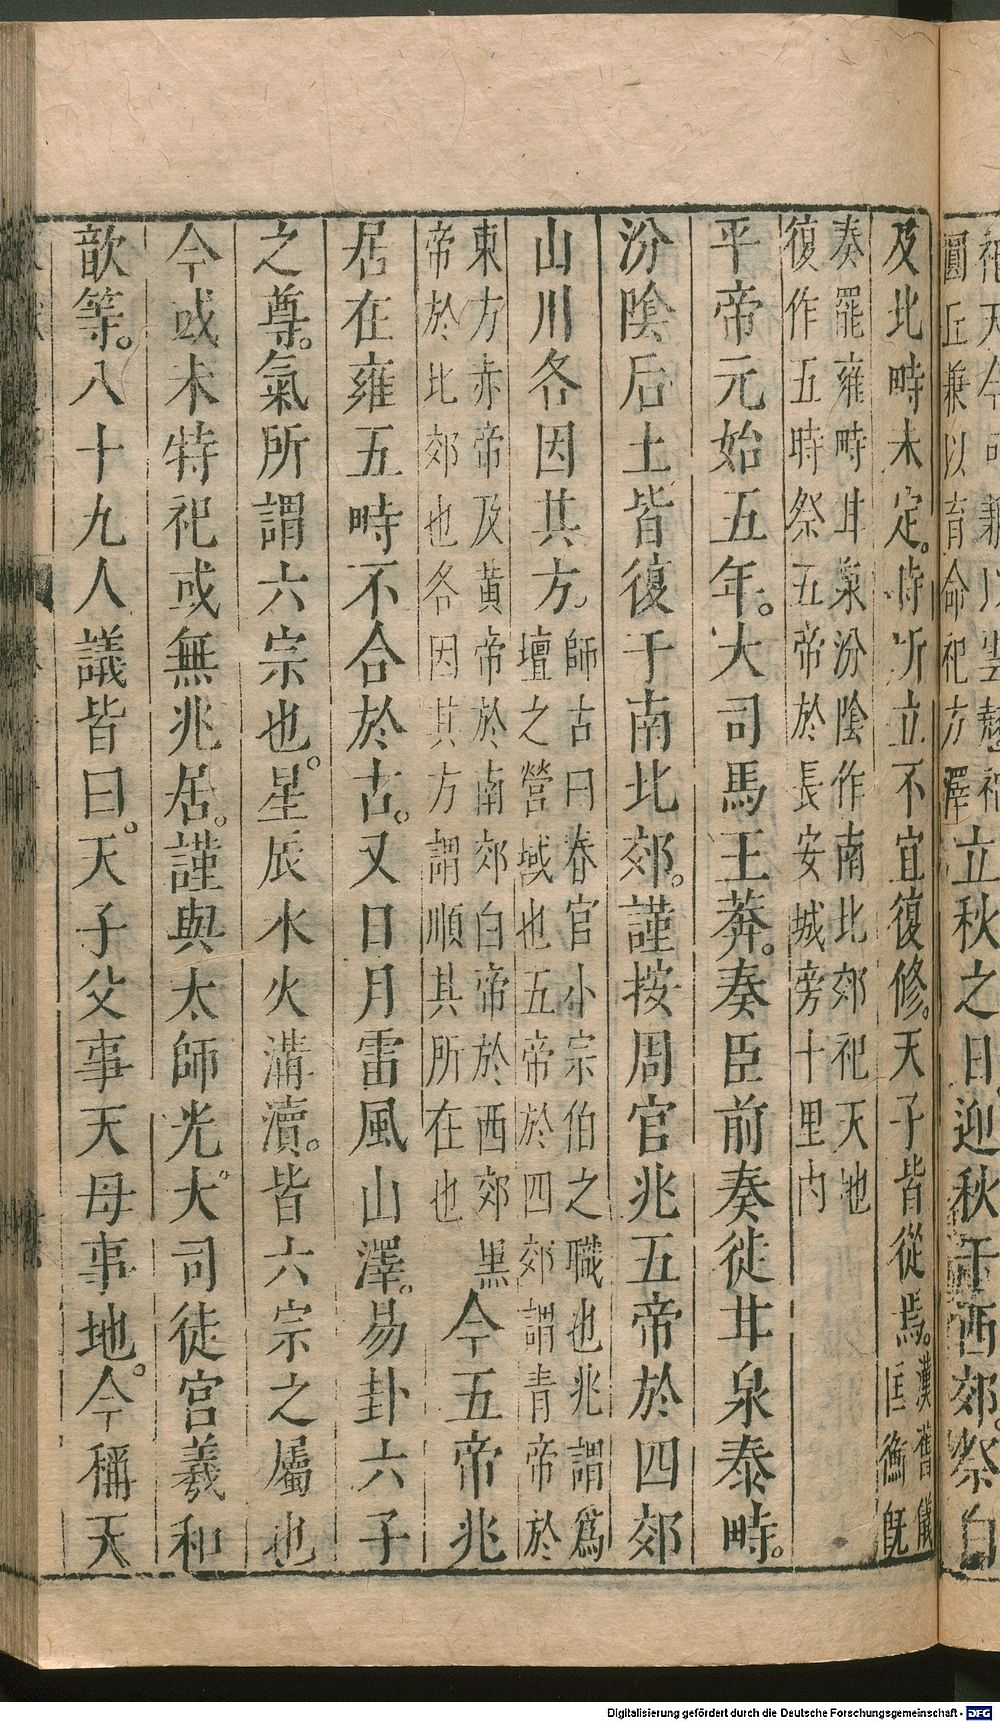 立秋之日迎秋于西郊。祭白
及北畤未定。時所立不宜復修。天子皆從焉。漢舊儀匡衡既
奏罷雍畤甘泉汾陰作南北郊祀天地
復作五畤祭五帝於長安城旁十里內
平帝元始五年。大司馬王莽。奏臣前奏徙甘泉泰畤。
汾陰后土皆復于南北郊。謹按周官兆五帝於四郊
山川各因其方。師古曰春官小宗伯之職也兆謂爲
壇之營域也五帝於四郊謂青帝於
東方赤帝及黃帝於南郊白帝於西郊黑
帝於北郊也各因其方謂順其所在也
今五帝兆
居在雍五畤不合於古。又日月雷風山澤。易卦六子
之尊。氣所謂六宗也。星辰水火溝瀆。皆六宗之屬也
今或未特祀或無兆居。謹與太師光。大司徒宮羲和
歆等。八十九人議皆曰。天子父事天母事地。今稱天
Digitalisierung gefördert durch die Deutsche Forschungsgemeinschaft - DFG